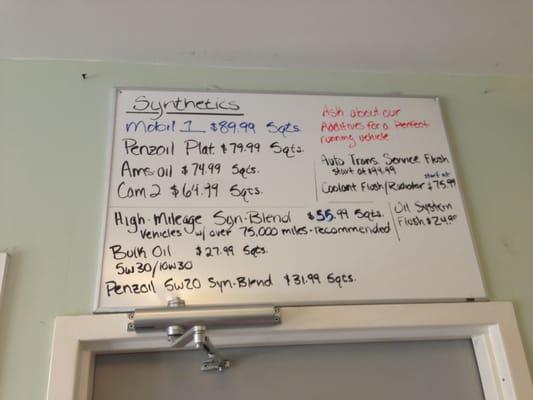 Synthetics
Mobil 1 $89.99 5qts.
Penzoil Plat. $79.99 5qts.
Ams.oil $74.99 5qts.
Cam 2 $64.99 5qts.
High-Mileage Syn-Blend $55.99 5qts.
Vehicles w/ over 75,000 miles-recommended
Bulk Oil $27.99 5qts.
5w30/10w30
Penzoil 5w20 Syn-Blend $31.99 5qts.
Ask about our
Additives for a Perfect
running vehicle
Auto Trans. Service Flush
start at $99.99
start at
Coolant Flush/Radiator $75.99
Oil System
Flush $24.99